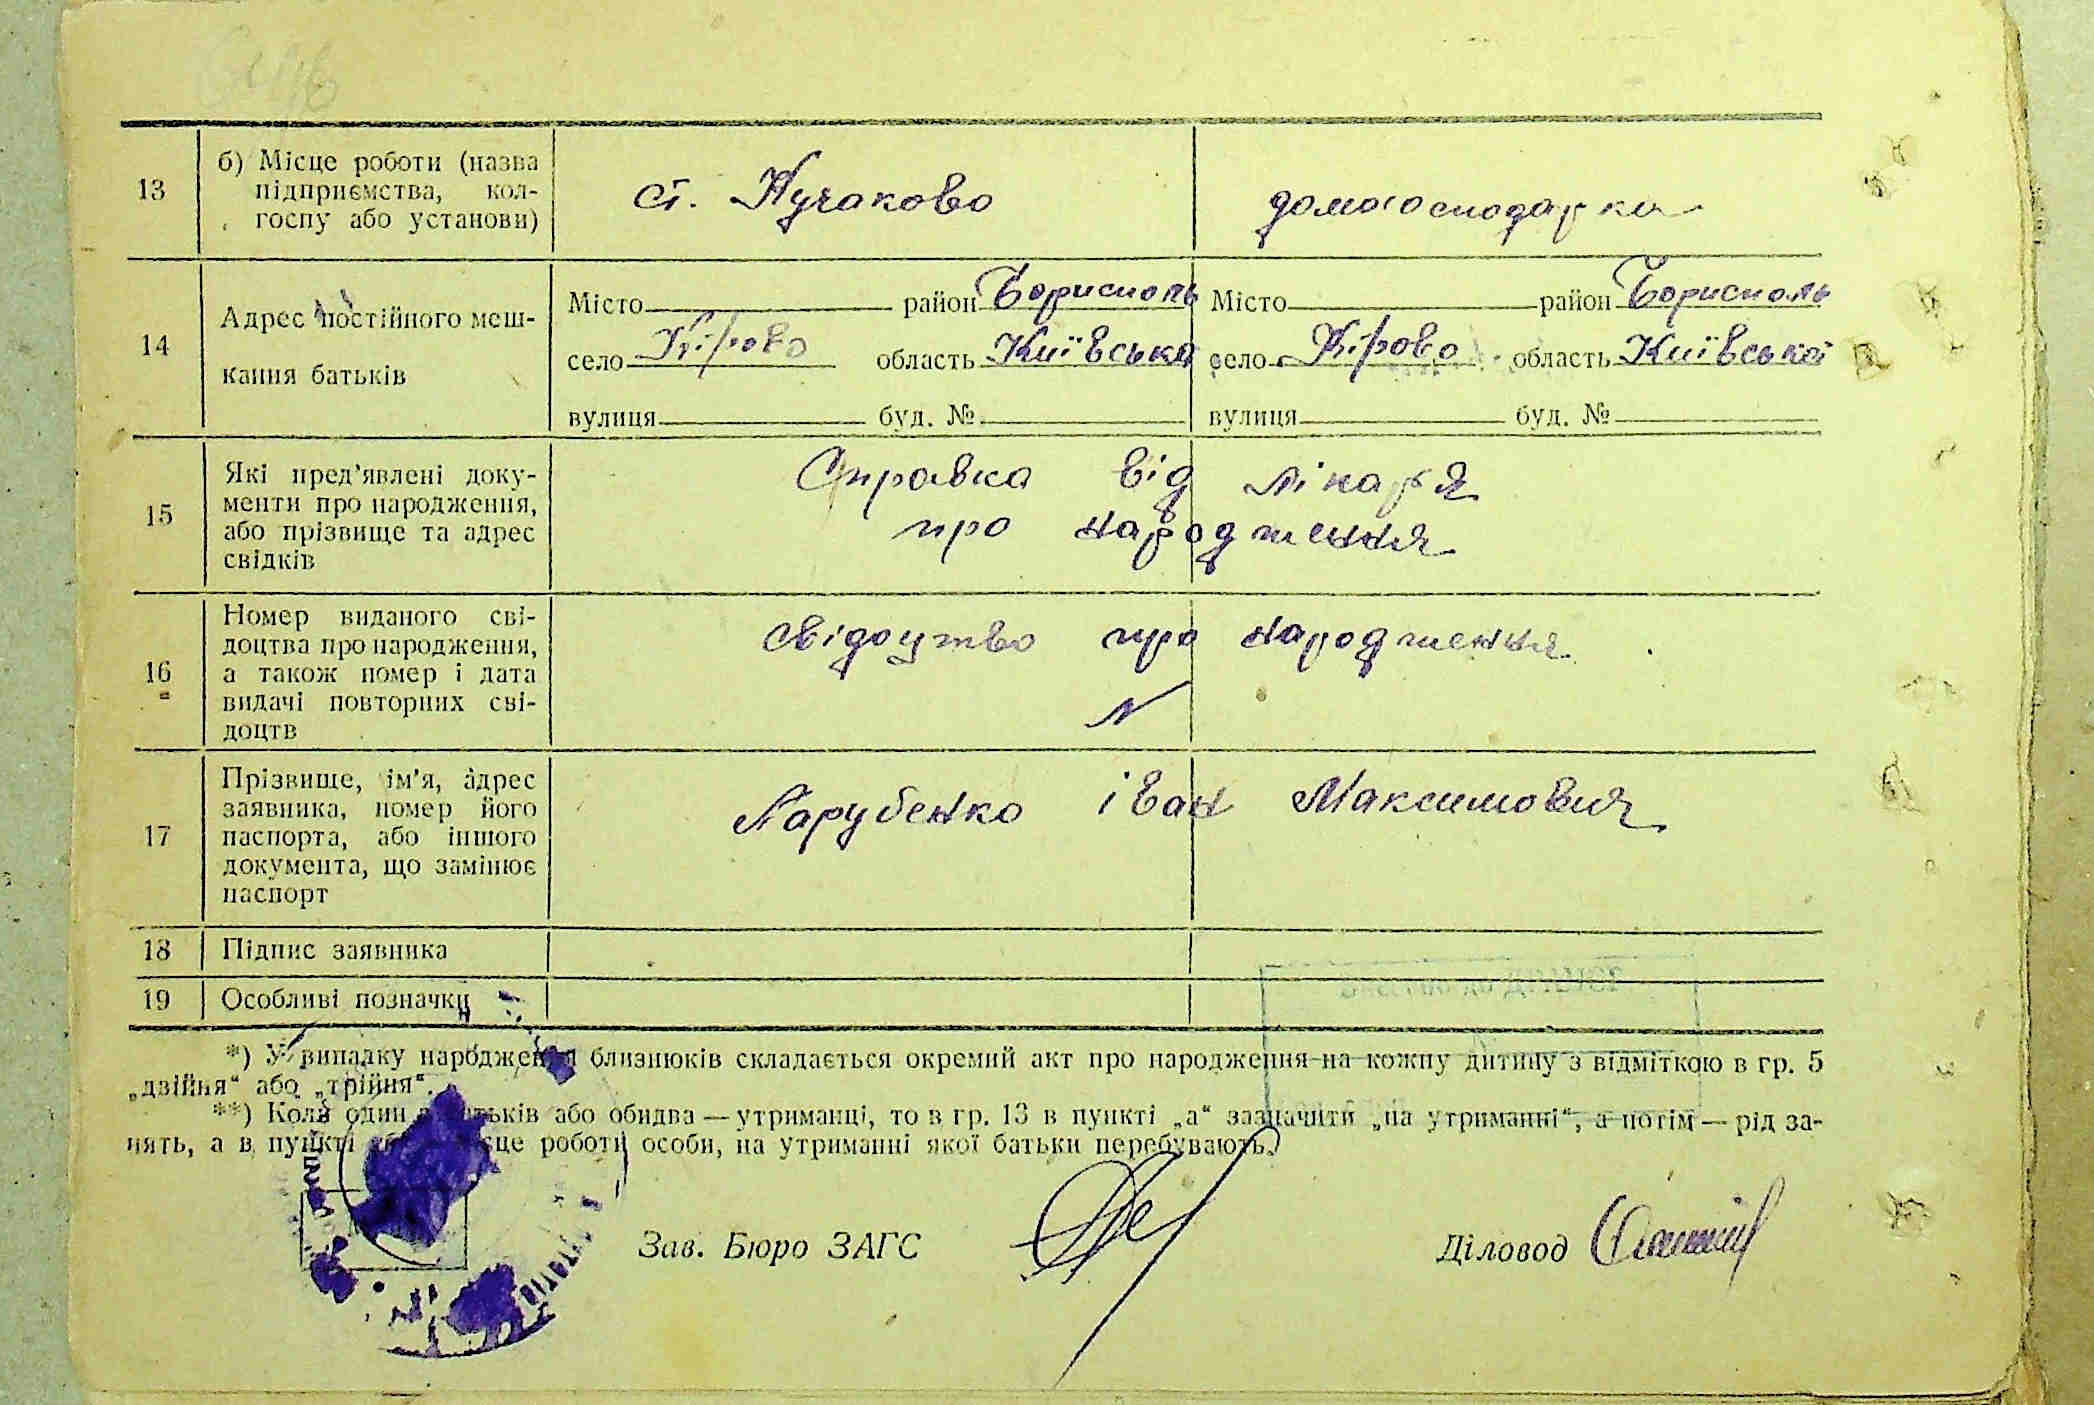 13
б) Місце роботи (назва
підприємства, кол-
госпу або установи)
ст. Кучаково
домогосподарка
14
Адрес постійного меш-
кання батьків
Місто район Бориспль
село Кірово область Київська
вулиця буд. №
Місто район Бориспаль
село Кірово область Київська
вулиця буд. №
15
Які пред'явлені доку-
менти про народження,
або прізвище та адрес
свідків
Справка від лікаря
про народження
16
Номер виданого сві-
доцтва про народження,
а також номер і дата
видачі повторних сві-
доцтв
свідоцтво про народження
N
17
Прізвище, ім'я, адрес
заявника, номер його
паспорта, або іншого
документа, що замінює
паспорт
Парубенко Іван Максимович
18
Підпис заявника
19
Особливі позначки
*) У випадку народження близнюків складається окремий акт про народження на кожну дитину з відміткою в гр. 5
„двійня“ або „трійня“.
**) Коли один батьків або обидва — утриманці, то в гр. 13 в пункті „а“ зазначити „на утриманні“, а потім — рід за-
нять, а в пункті роботи особи, на утриманні якої батьки перебувають.
Зав. Бюро ЗАГС
Діловод